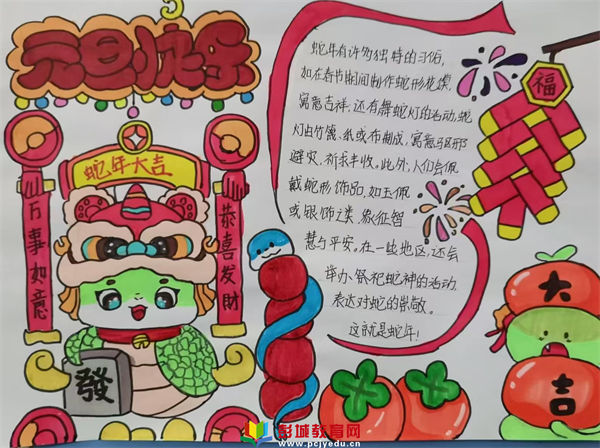 元旦快乐
蛇年大吉
万事如意
恭喜发财
發
蛇年有许多独特的习俗,
如在春节期间制作蛇形花馍,
寓意吉祥;还有舞蛇灯的活动,蛇
灯由竹篾、纸或布制成,寓意驱邪
避灾、祈求丰收。此外,人们会佩
戴蛇形饰品,如玉佩
或银饰之类,象征智
慧与平安。在一些地区,还会
举办祭祀蛇神的活动,
表达对蛇的崇敬。
这就是蛇年!
福
大
吉
彭城教育网
www.pcjyedu.cn